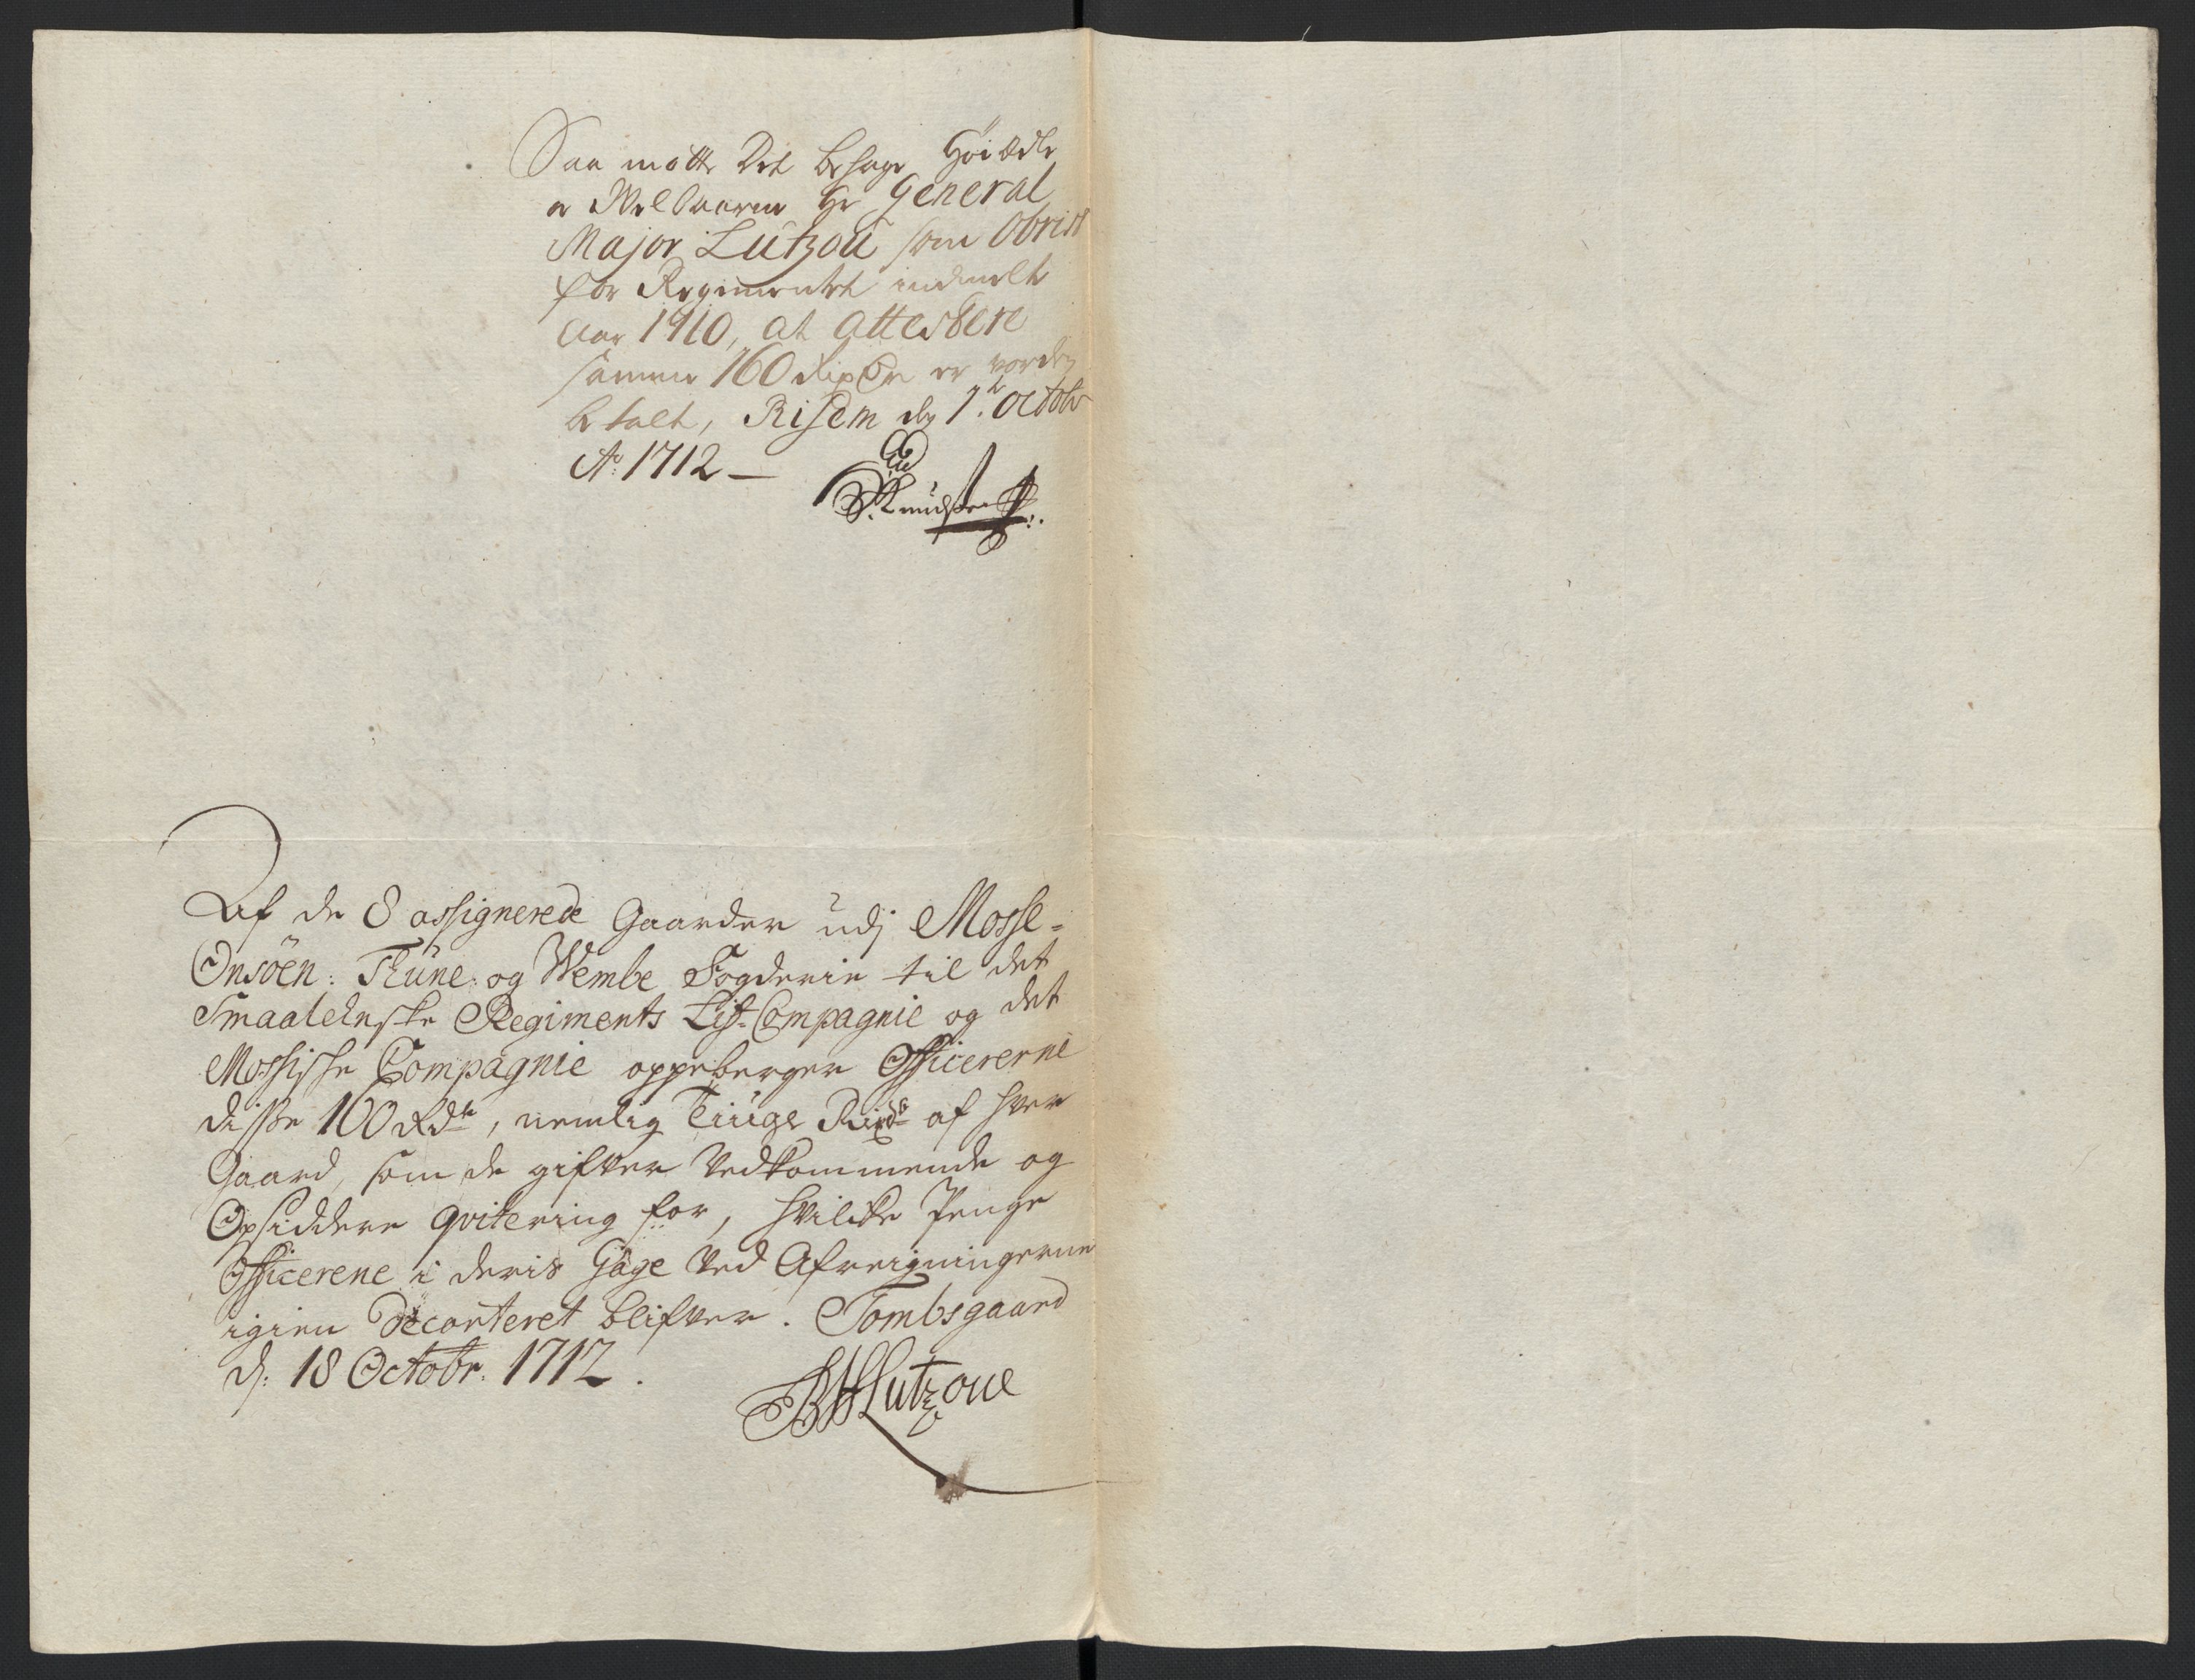 Saa motte Det behage HöiÆdle
og Welbaarne Hr General
Major Lützou som Obrist
for Regimentet indmelte
Aar 1710, at attestere
samme 160 Rixdr er worden
betalt, Risem den 1te Octobr
Ao: 1712 —
Knudsen
Af de 8 assignerede Gaarder udj Mosse-
Onsöen: Thüne: og Wembe Fogderie til det
Smaalehnske Regiments Lif-Compagnie og det
Mossiske Compagnie oppeberger Officererne
disse 160 Rdr, nemlig Tiuge Rixdr af hver
Gaard, som de gifver Vedkommende og
Opsiddere qvitering for, hvilcke Penge
Officerene i deris Gage Ved Afreigningerne
igien decorteret blifver. Tombsgaard
d: 18 Octobr: 1712.
BHLutzoue